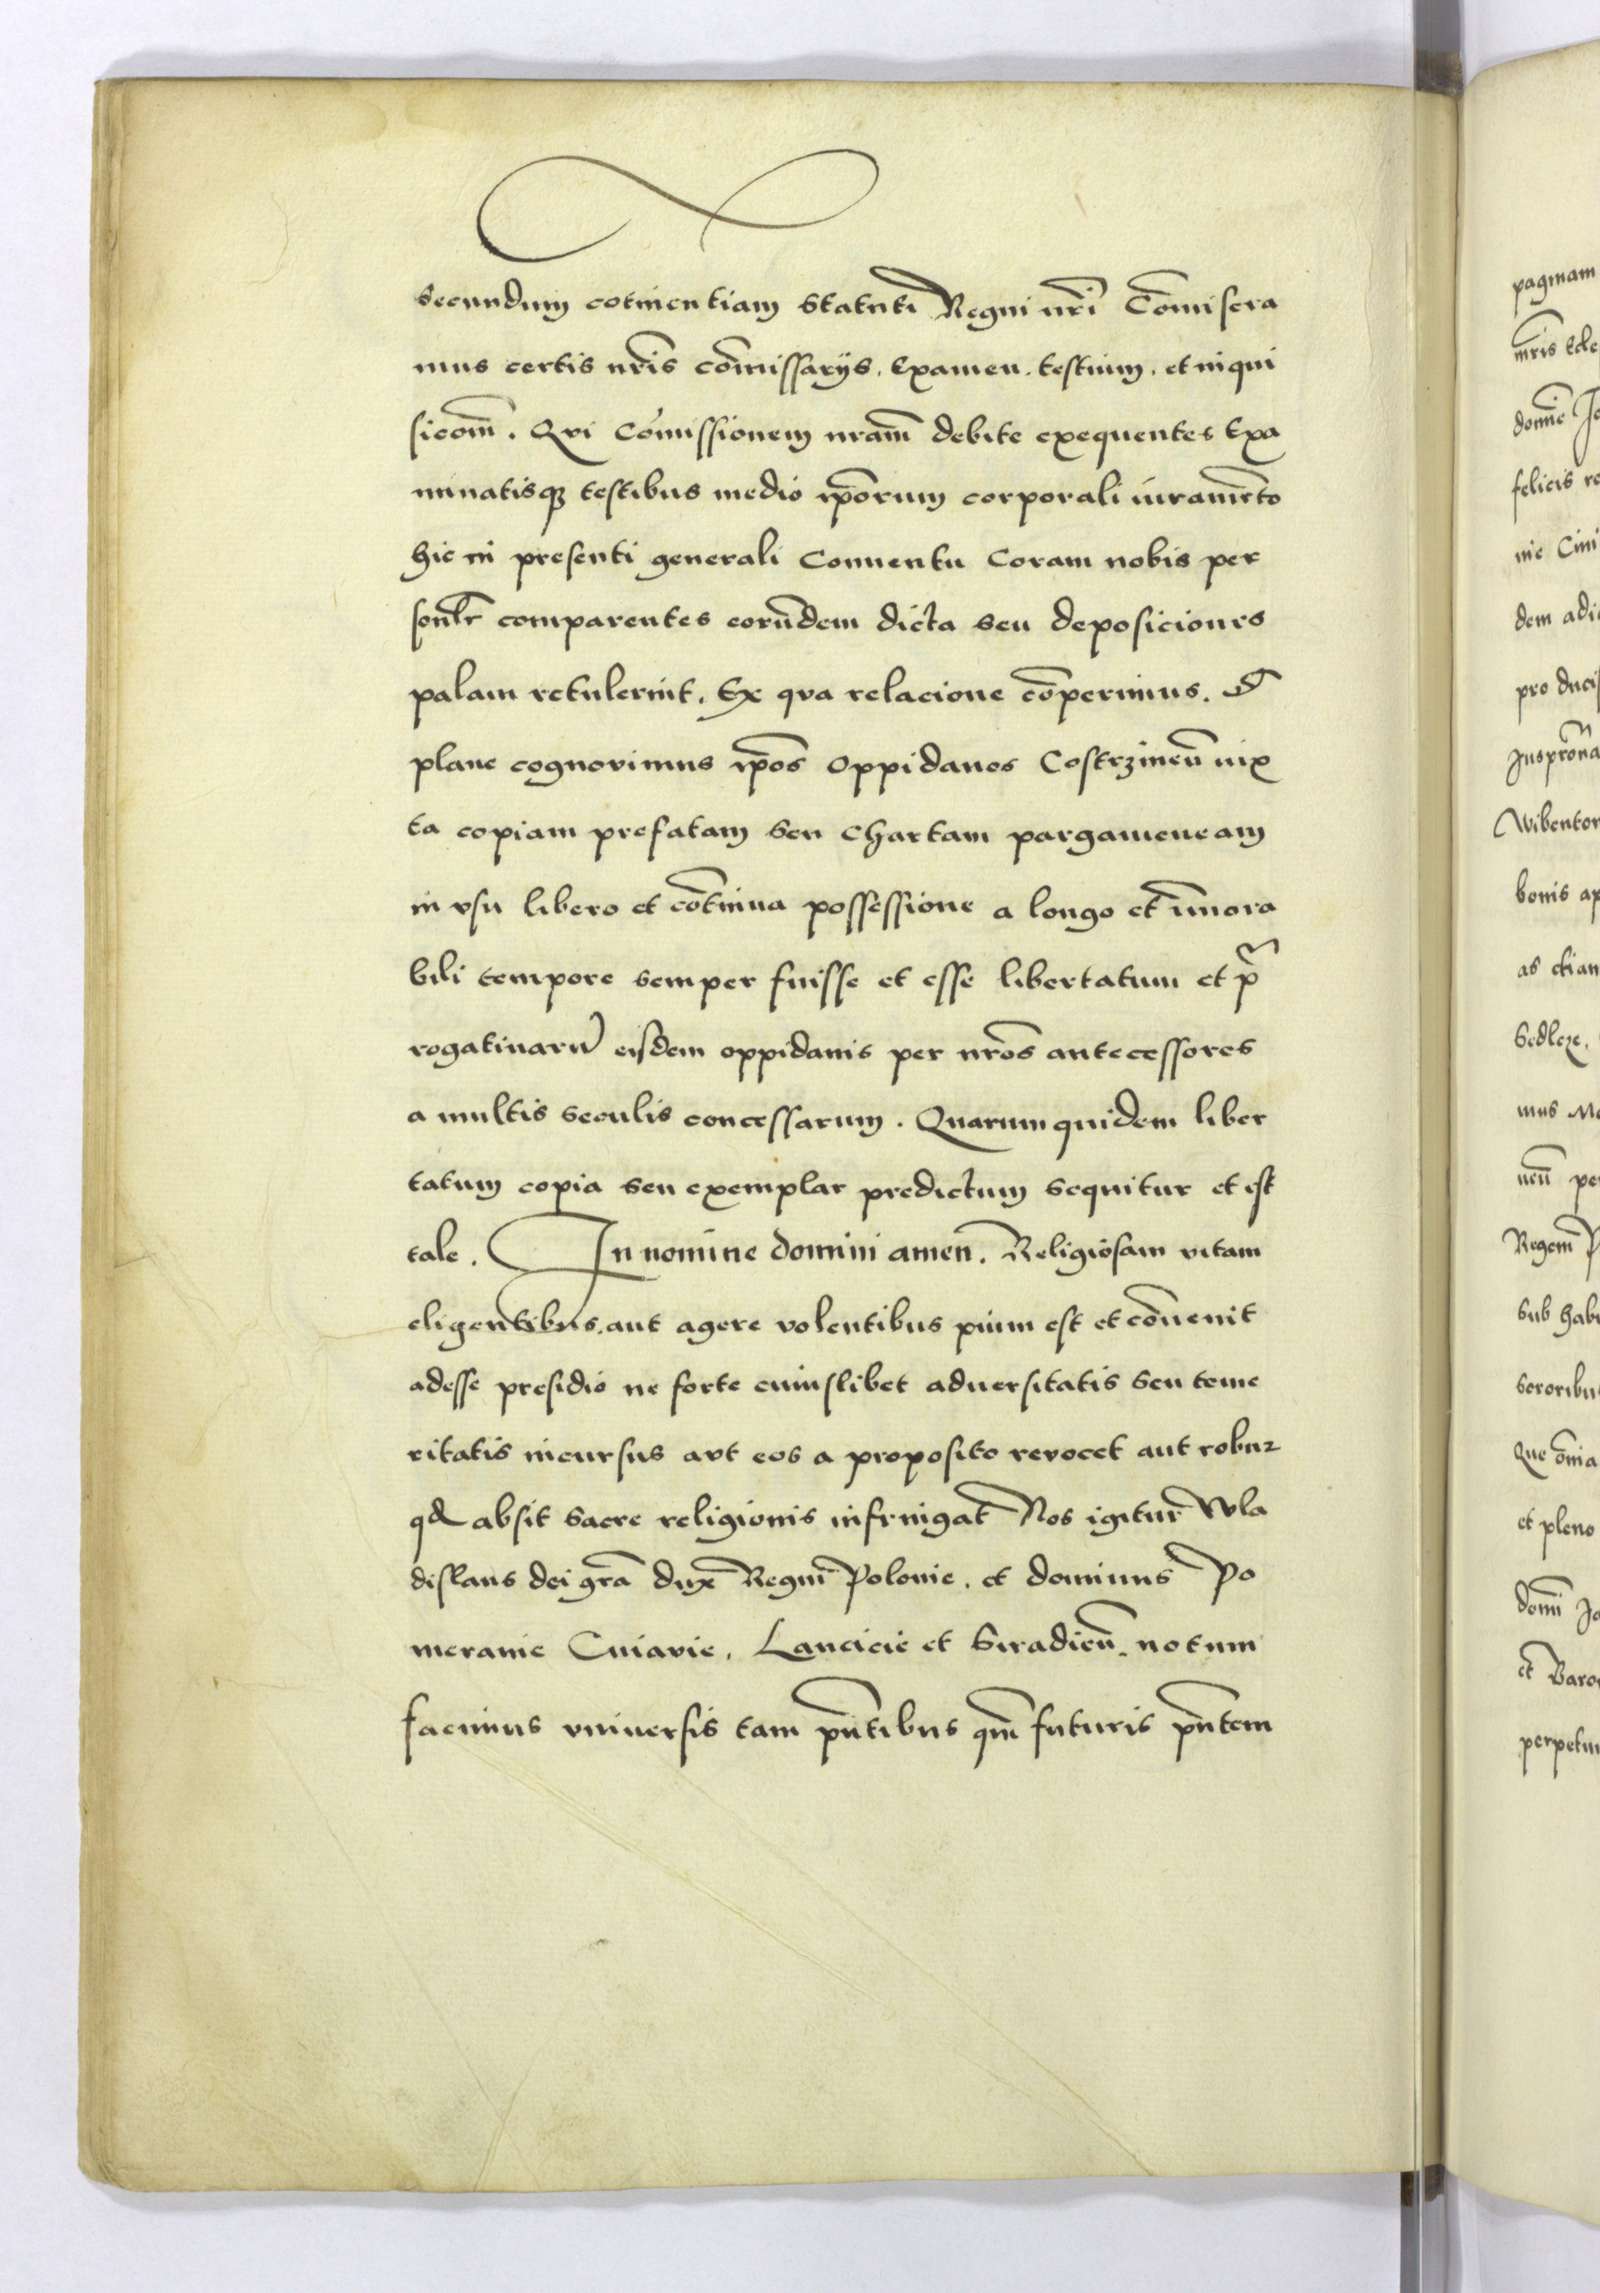 secundum cotinentiam Statuti Regni nr̄i Com̄isera
mus certis nr̄is com̄issarÿs. Examen. testium. et inqui
sicom̄. Qvi Com̄issionem nram̄ debite exequentes Exa
minatisq₃ testibus medio ip̄orum corporali iuramēto
hic in presenti generali Conuentu Coram nobis per
sonlr̄ comparentes eorūdem dicta seu deposiciones
palam retulerūt. Ex qva relacione cōperimus. Et
plane cognovimus ip̄os Oppidanos Costrzineñ iux
ta copiam prefatam seu Chartam pargameneam
in vsu libero et cōtinua possessione a longo et īmora
bili tempore semper fuisse et esse libertatum et p̄
rogatiuarū eisdem oppidanis per nr̄os antecessores
a multis seculis concessarum. Quarum quidem liber
tatum copia seu exemplar predictum sequitur et est
tale. In nomine domini amen. Religiosam vitam
eligentibus. aut agere volentibus pium est et cōuenit
adesse presidio ne forte cuiuslibet aduersitatis seu teme
ritatis incursus avt eos a proposito revocet aut robur
qd absit sacre religionis infringat Nos igitur Wla
dislaus dei gr̄a dux Regni Polonie. et dominus Po
meranie Cuiavie. Lancicie et Siradieñ. notum
facimus vniuersis tam pn̄tibus qm̄ futuris pn̄tem
pagmam
nr̄is Ecle
domīe Jo
felicis re
nie Cini
dem adi
pro duci
Juspr̄ona
Wibentor
bonis ap
as etian
Sedleze.
mus Mo
ueñ pe
Regem P
Sub habi
Sororibu
Que om̄ia
et pleno
domī Jo
et Baro
perpetu